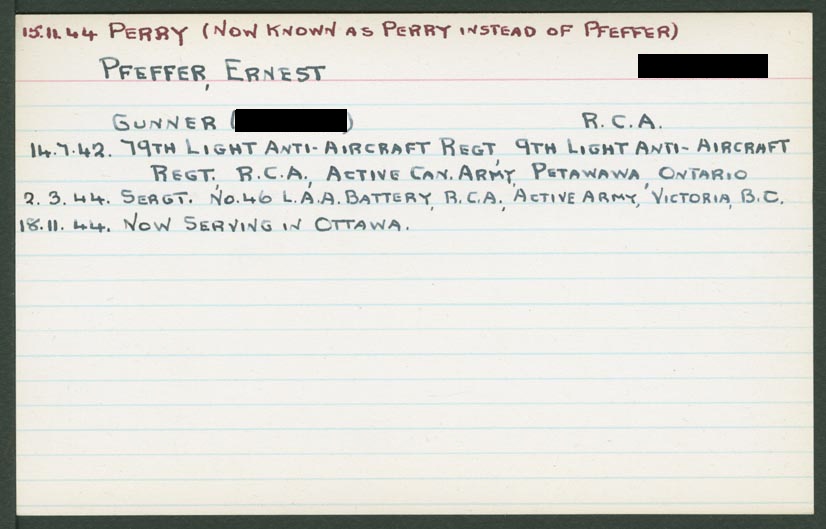 15.11.44 PERRY (NOW KNOWN AS PERRY INSTEAD OF PFEFFER)
PFEFFER, ERNEST
GUNNER ( ) R.C.A.
14.7.42. 79TH LIGHT ANTI-AIRCRAFT REGT, 9TH LIGHT ANTI-AIRCRAFT
REGT., R.C.A., ACTIVE CAN. ARMY, PETAWAWA, ONTARIO
2.3.44. SERGT. NO.46 L.A.A. BATTERY, R.C.A., ACTIVE ARMY, VICTORIA, B.C.
18.11.44. NOW SERVING IN OTTAWA.